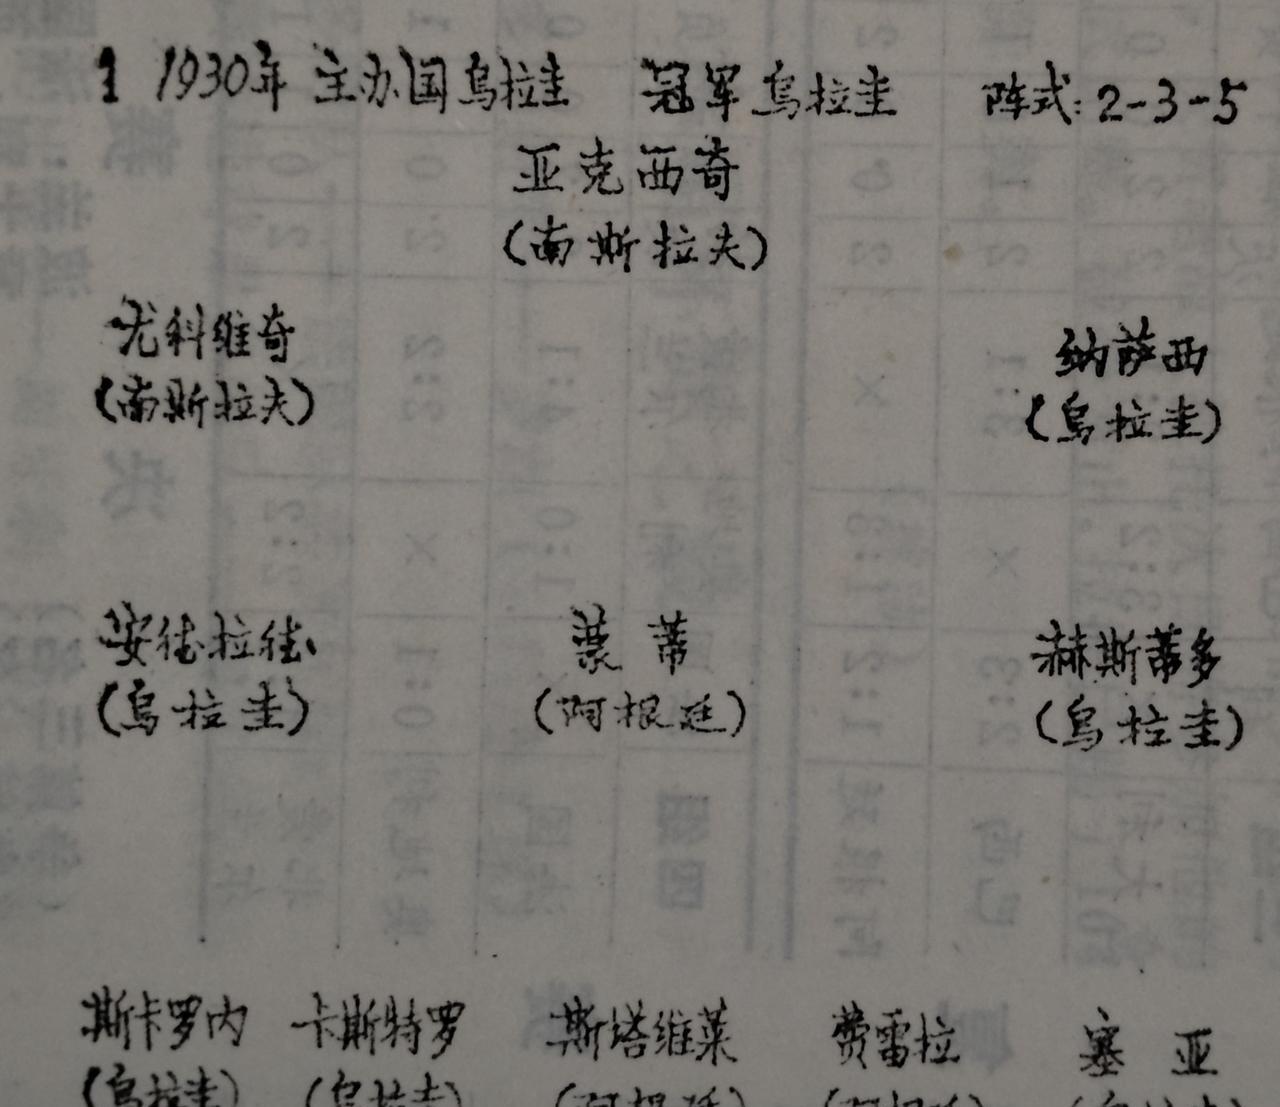 1 1930年 主办国乌拉圭 冠军乌拉圭 阵式:2-3-5
亚克西奇
(南斯拉夫)
尤科维奇 纳萨西
(南斯拉夫) (乌拉圭)
安德拉德 蒙蒂 赫斯蒂多
(乌拉圭) (阿根廷) (乌拉圭)
斯卡罗内 卡斯特罗 斯塔维莱 费雷拉 塞亚
(乌拉圭) (乌拉圭) (阿根廷)